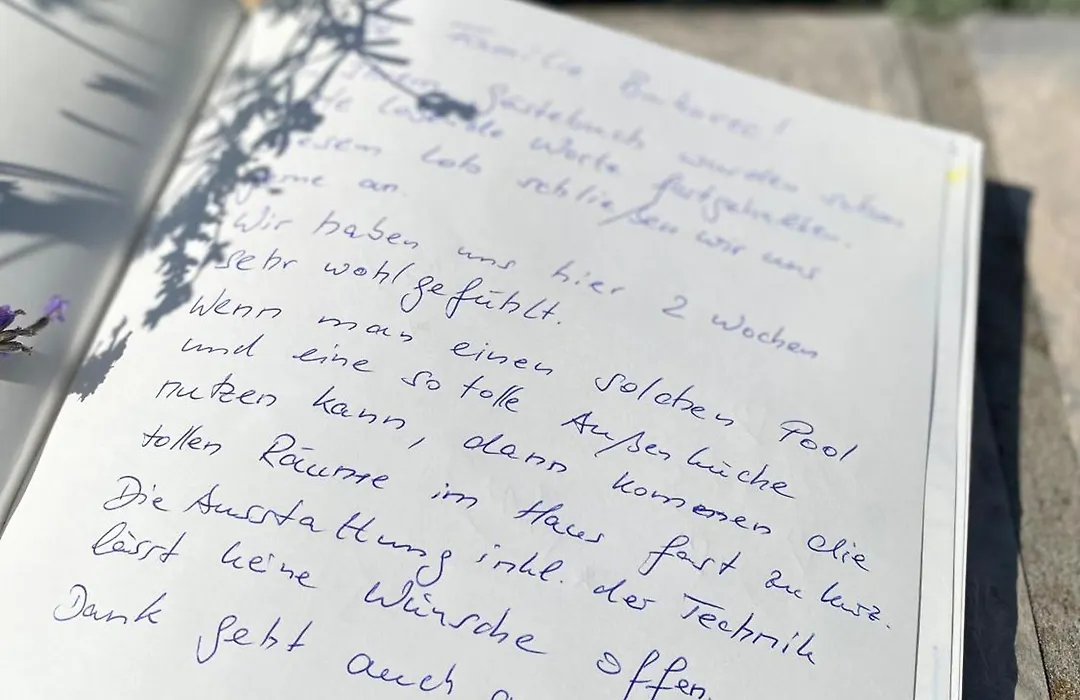 Familie
Gästebuch wurden schon
Worte festgehalten.
diesem Lob schließen wir uns
gerne an.
Wir haben uns hier 2 Wochen
sehr wohl gefühlt.
Wenn man einen solchen Pool
und eine so tolle Außenküche
nutzen kann, dann kommen die
tollen Räume im Haus fast zu kurz.
Die Ausstattung inkl. der Technik
lässt keine Wünsche offen.
Dank geht auch